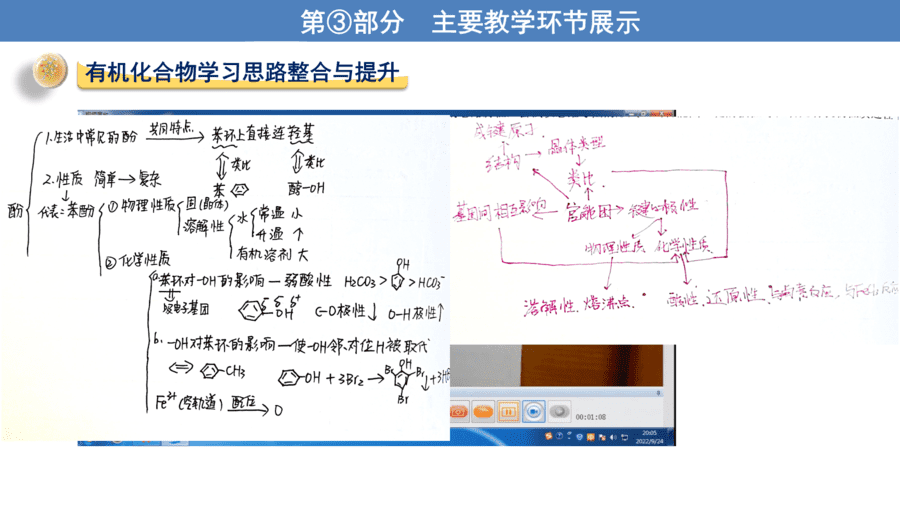 第③部分 主要教学环节展示
有机化合物学习思路整合与提升
酚
1.生活中常见的酚 共同特点 苯环上直接连羟基
类比 类比
苯 醇-OH
2.性质 简单→复杂
代表:苯酚
① 物理性质
固(晶体)
溶解性
水
常温 小
升温 ↑
有机溶剂 大
② 化学性质
a.苯环对-OH的影响—弱酸性 H₂CO₃ > OH > HCO₃⁻
吸电子基团
δ⁻ δ⁺
OH
C-O极性↓ O-H极性↑
b. -OH对苯环的影响—使-OH邻、对位H被取代
⇔ -CH₃
-OH + 3Br₂ → Br OH Br ↓ + 3HB
Br
Fe³⁺ (空轨道) 配位 O
成键原子
结构 → 晶体类型
类比
基团间相互影响 ← 官能团 → 键的极性
物理性质 化学性质
溶解性 熔沸点
酸性、还原性、
00:01:08
20:05
2022/9/24